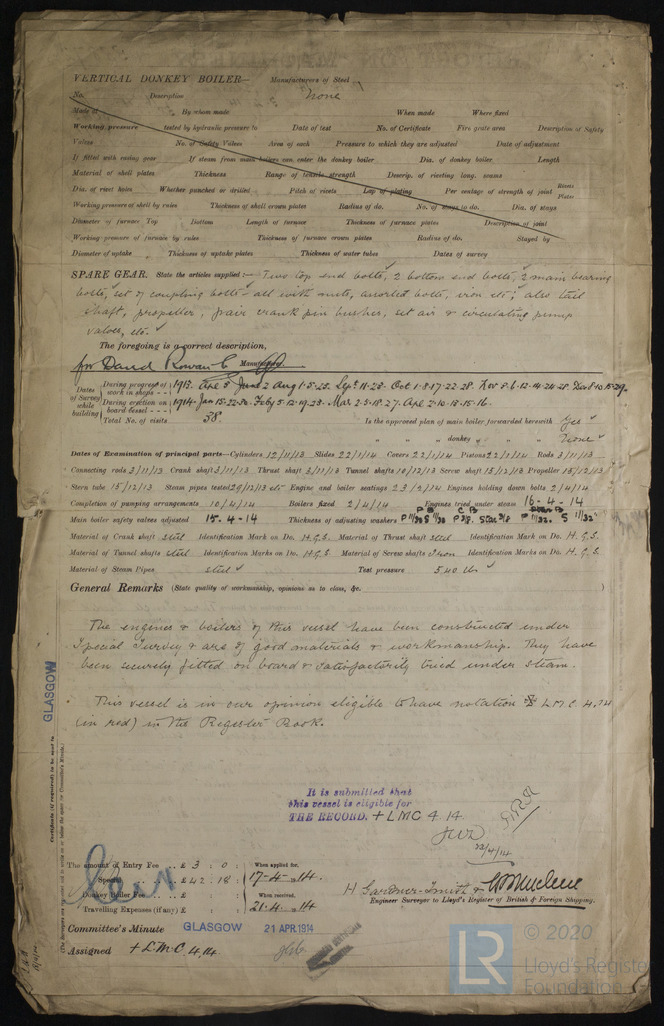 VERTICAL DONKEY BOILER— Manufacturers of Steel
No. Description None
Made at By whom made When made Where fixed
Working pressure tested by hydraulic pressure to Date of test No. of Certificate Fire grate area Description of Safety
Valves No. of Safety Valves Area of each Pressure to which they are adjusted Date of adjustment
If fitted with easing gear If steam from main boilers can enter the donkey boiler Dia. of donkey boiler Length
Material of shell plates Thickness Range of tensile strength Descrip. of riveting long. seams
Dia. of rivet holes Whether punched or drilled Pitch of rivets Lap of plating Per centage of strength of joint Rivets Plates
Working pressure of shell by rules Thickness of shell crown plates Radius of do. No. of stays to do. Dia. of stays
Diameter of furnace Top Bottom Length of furnace Thickness of furnace plates Description of joint
Working pressure of furnace by rules Thickness of furnace crown plates Radius of do. Stayed by
Diameter of uptake Thickness of uptake plates Thickness of water tubes Dates of survey
SPARE GEAR. State the articles supplied:— Two top end bolts, 2 bottom end bolts, 2 main bearing
bolts, set of coupling bolts - all with nuts, assorted bolts, iron etc; also tail
shaft, propeller, pair crank pin bushes, set air & circulating pump
valves, etc.
The foregoing is a correct description,
for David Rowan & Co Manufacturer.
Dates of Survey while building
During progress of work in shops - - 1913. Apl 3 June 2 Aug 1.5.25. Sept. 11.23. Oct 1.8.17.22.28. Nov 5.6.12.14.24.28 Dec 8.10.15.29.
During erection on board vessel - - - 1914. Jan 15.22.30. Feby 5.12.19.23. Mar 2.5.18.27. Apl 2.10.13.15.16.
Total No. of visits 38. Is the approved plan of main boiler forwarded herewith Yes
" " " donkey " " None
Dates of Examination of principal parts—Cylinders 12/11/13 Slides 22/1/14 Covers 22/1/14 Pistons 22/1/14 Rods 3/11/13
Connecting rods 3/11/13 Crank shaft 3/11/13 Thrust shaft 3/11/13 Tunnel shafts 10/12/13 Screw shaft 15/12/13 Propeller 15/12/13
Stern tube 15/12/13 Steam pipes tested 29/12/13 etc Engine and boiler seatings 23/2/14 Engines holding down bolts 2/4/14
Completion of pumping arrangements 10/4/14 Boilers fixed 2/4/14 Engines tried under steam 16-4-14
Main boiler safety valves adjusted 15.4-14 Thickness of adjusting washers
Material of Crank shaft steel Identification Mark on Do. H.G.S. Material of Thrust shaft steel Identification Mark on Do. H.G.S.
Material of Tunnel shafts steel Identification Marks on Do. H.G.S Material of Screw shafts Iron Identification Marks on Do. H.G.S.
Material of Steam Pipes steel Test pressure 540 lbs
General Remarks (State quality of workmanship, opinions as to class, &c.
The engines & boilers of this vessel have been constructed under
Special Survey & are of good materials & workmanship. They have
been securely fitted on board & satisfactorily tried under steam.
This vessel is in our opinion eligible to have notation L.M.C. 4.14
(in red) in the Register Book.
GLASGOW
Certificate (if required) to be sent to
(The Surveyors are requested not to write on or below the space for Committee's Minute.)
It is submitted that
this vessel is eligible for
THE RECORD. + LMC 4.14.
JWD
22/4/14
The amount of Entry Fee .. £ 3 : 0 : When applied for,
Special .. £ 42 : 18 : 17-4-14.
Donkey Boiler Fee .. £ : : When received,
Travelling Expenses (if any) £ : : 21.4.14
H Gardner-Smith &
Engineer Surveyor to Lloyd's Register of British & Foreign Shipping.
Committee's Minute GLASGOW 21 APR. 1914
Assigned + L.M.C. 4.14
LR © 2020
Lloyd's Register
Foundation